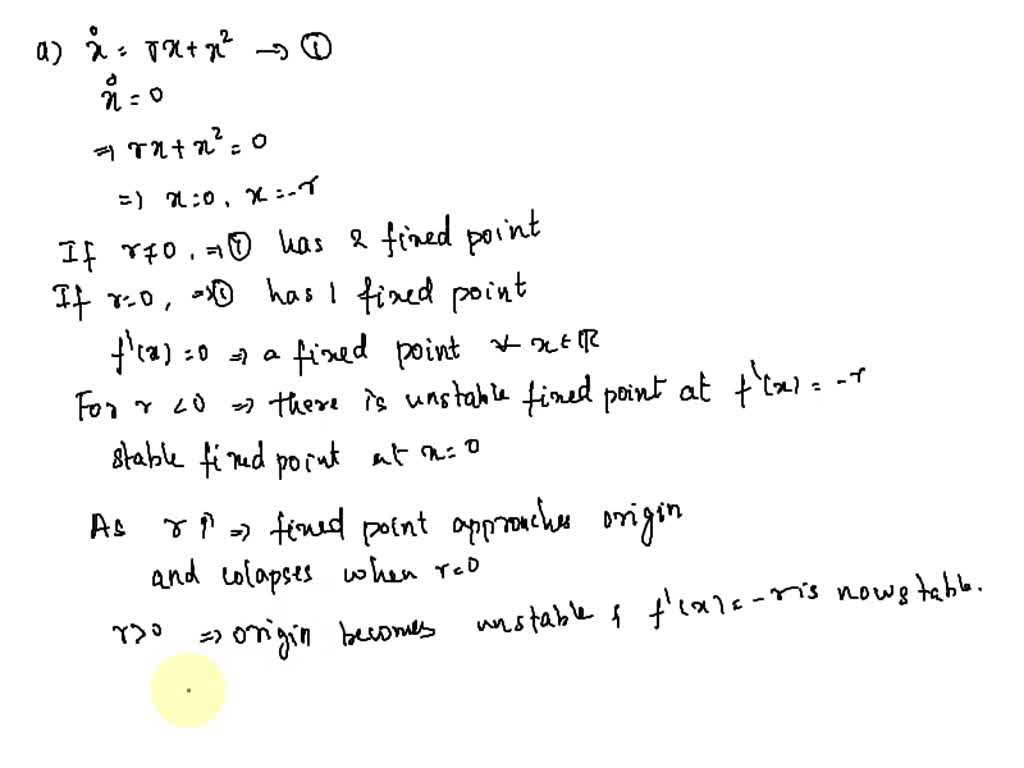 a) ẋ = rx + x² → ①
ẋ = 0
⇒ rx + x² = 0
⇒ x=0, x=-r
If r≠0, ⇒ ① has 2 fixed point
If r=0, ⇒ ① has 1 fixed point
f'(x) = 0 ⇒ a fixed point ∀ x ∈ ℝ
For r < 0 ⇒ there is unstable fixed point at f'(x) = -r
stable fixed point at x=0
As r ↑ ⇒ fixed point approaches origin
and colapses when r=0
r>0 ⇒ origin becomes unstable & f'(x) = -r is now stable.